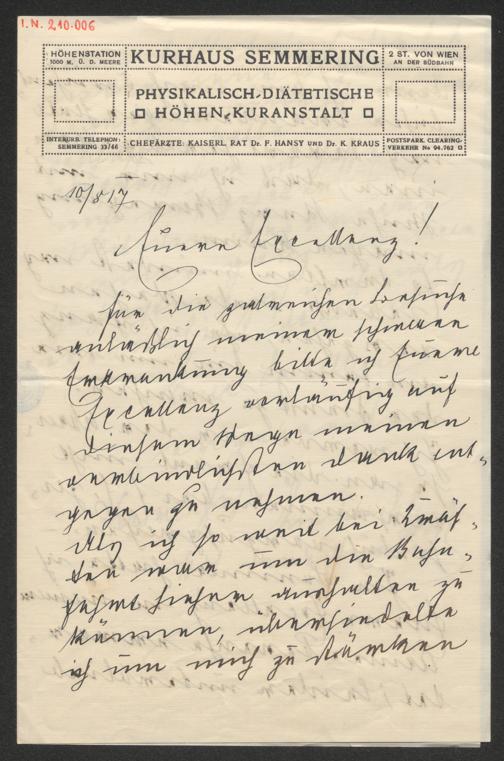 I.N. 210.006
HÖHENSTATION
1000 M. Ü. D. MEERE
KURHAUS SEMMERING
2 ST. VON WIEN
AN DER SÜDBAHN
PHYSIKALISCH-DIÄTETISCHE
HÖHEN-KURANSTALT
INTERURB. TELEPHON:
SEMMERING 33/46
CHEFÄRZTE: KAISERL. RAT DR. F. HANSY UND DR. K. KRAUS
POSTSPARK. CLEARING-
VERKEHR No 94.762
10/8 17
Euere Excellenz!
Für die zalreichen Besuche
anläßlich meiner schweren
Erkrankung bitte ich Euere
Excellenz vorläufig auf
diesem Wege meinen
verbindlichsten Dank ent-
gegen zu nehmen.
Als ich so weit bei Kräf-
ten war um die Bahn-
fahrt hieher aushalten zu
können, übersiedelte
ich um mich zu stärken